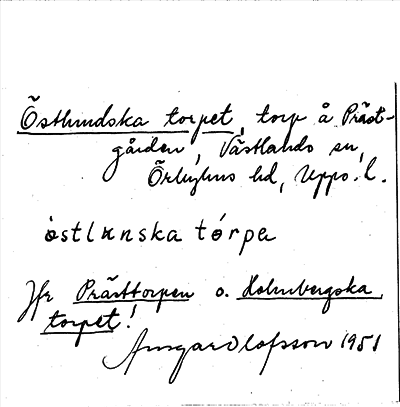 Östlundska torpet, torp å Präst-
gården, Västlands sn,
Örbyhus hd, Upps. l.
òstlunska tórpe
Jfr Prästtorpen o. Holmbergska
torpet!
Ansgar Olofsson 1951